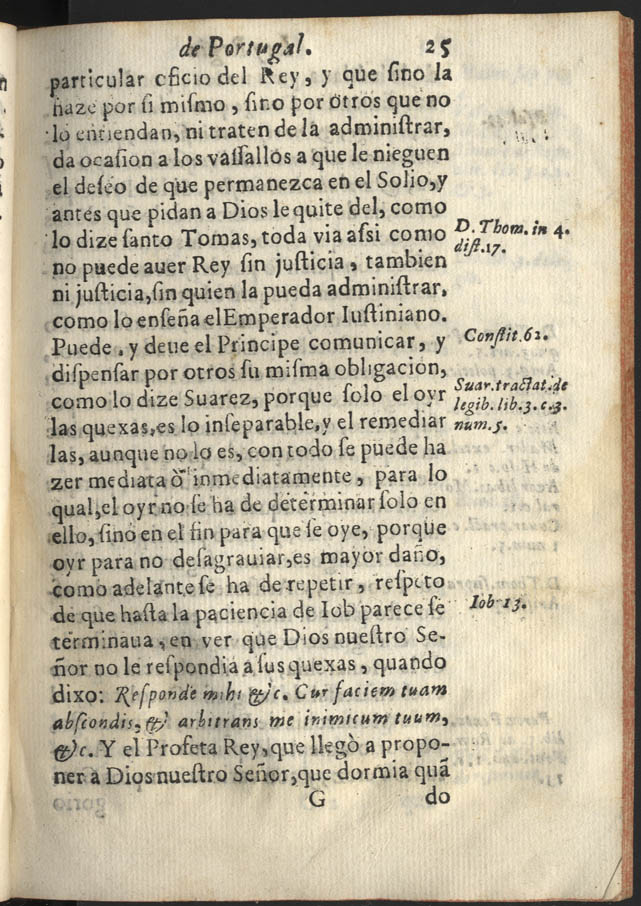 de Portugal. 25
particular oficio del Rey, y que ſino la
haze por ſi miſmo, ſino por otros que no
lo entiendan, ni traten de la adminiſtrar,
da ocaſion a los vaſſallos a que le nieguen
el deſeo de que permanezca en el Solio, y
antes que pidan a Dios le quite del, como
lo dize ſanto Tomas, toda via aſsi como
D. Thom. in 4.
diſt. 17.
no puede auer Rey ſin juſticia, tambien
ni juſticia, ſin quien la pueda adminiſtrar,
como lo enſeña el Emperador Iuſtiniano.
Puede, y deue el Principe comunicar, y
Conſtit. 62.
diſpenſar por otros ſu miſma obligacion,
como lo dize Suarez, porque ſolo el oyr
Suar. tractat. de
legib. lib. 3. c. 3.
num. 5.
las quexas, es lo inſeparable, y el remediar
las, aunque no lo es, con todo ſe puede ha
zer mediata ò inmediatamente, para lo
qual, el oyr no ſe ha de determinar ſolo en
ello, ſino en el fin para que ſe oye, porque
oyr para no deſagrauiar, es mayor daño,
como adelante ſe ha de repetir, reſpeto
de que haſta la paciencia de Iob parece ſe
Iob 13.
terminaua, en ver que Dios nueſtro Se-
ñor no le reſpondia a ſus quexas, quando
dixo: Reſponde mihi &c. Cur faciem tuam
abſcondis, & arbitrans me inimicum tuum,
&c. Y el Profeta Rey, que llegò a propo-
ner a Dios nueſtro Señor, que dormia quã
G do